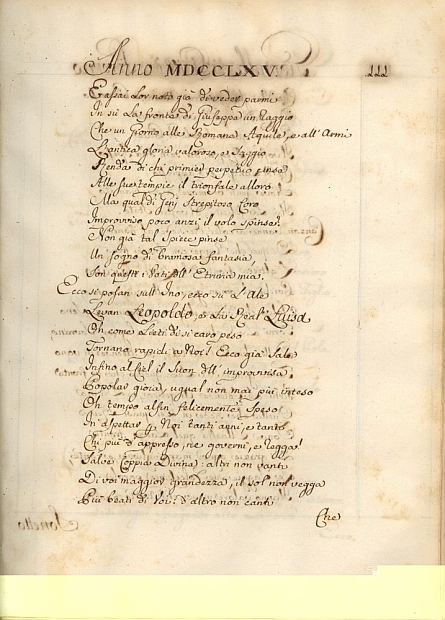 Anno MDCCLXV.
E assai Lor noto già di veder parmi
In sù La fronte di Giuseppe un Raggio
Che un Giorno alle Romane Aquile, e all' Armi
L'antica gloria valoroso, e Saggio
Renda di chi primier perpetuo cinse
Alle sue tempie il trionfale alloro
Ma qual di Genj Strepitoso Coro
Improvviso poco anzi il volo spinse?
Non già tal Spiece pinse
Un sogno di bramosa fantasia,
Son questi i Voti dell' Etruria mia.
Ecco si posan sull' Ino, ecco su L'Ale
Levan Leopoldo, e La Real' Luisa
Oh come Lieti di sì caro peso
Tornano rapidi a Noi! Ecco già Sale
Infino al Ciel il Suon dell' improvvisa
Popolar gioia, ugual non mai più inteso
Oh tempo alfin felicemente Speso
In aspettar p. Noi tanti anni, e tanto
Chi più d'appresso, ne governi, e regga!
Salve Coppia Divina: altri non vanti
Di voi maggior grandezza, il Sol non vegga
Più beati di Voi: d'altro non canti
Che